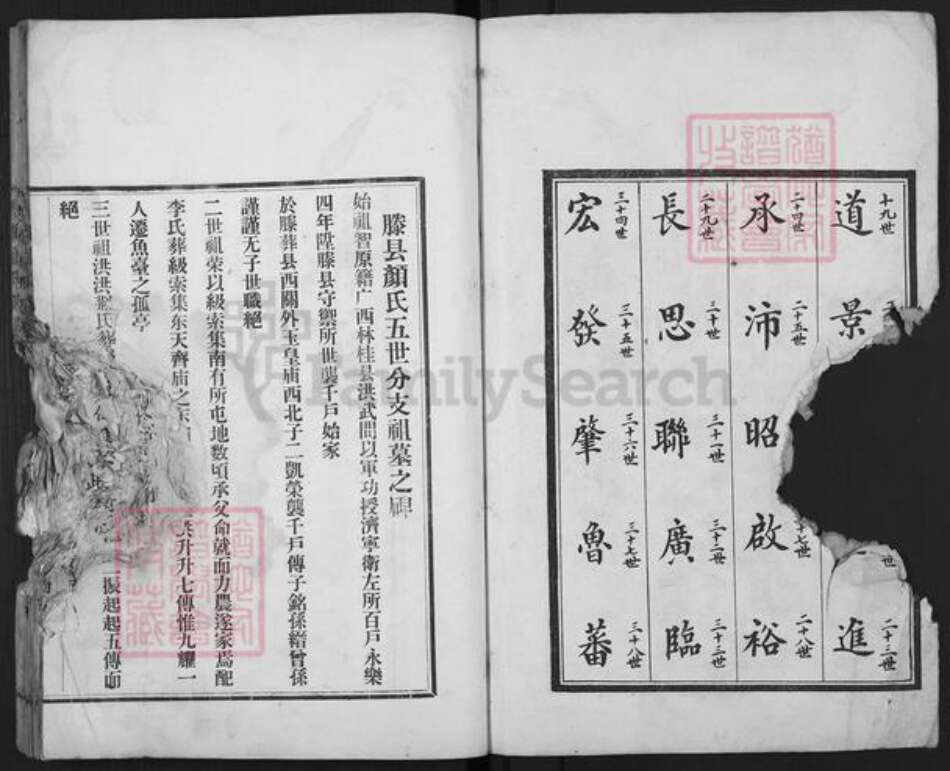 十九世 道 景 二十三世 進
二十四世 承 二十五世 沛 昭 啟 二十八世 裕
二十九世 長 三十世 思 三十一世 聯 三十二世 廣 三十三世 臨
三十四世 宏 三十五世 發 三十六世 肇 三十七世 魯 三十八世 蕃
滕县顏氏五世分支祖墓之碑
始祖智原籍广西林桂县洪武間以軍功授濟寧衛左所百戶永樂
四年陞滕县守禦所世襲千戶始家
於滕葬县西關外玉皇庙西北子二凱榮襲千戶傳子銘孫縉曾孫
謹謹无子世職絕
二世祖荣以級索集南有所屯地数頃承父命就而力農遂家焉配
李氏葬級索集东天齊庙之东 升升七傳惟九耀一
人遷魚臺之孤亭
三世祖洪洪 氏葬 振起起五傳而
絕
FamilySearch